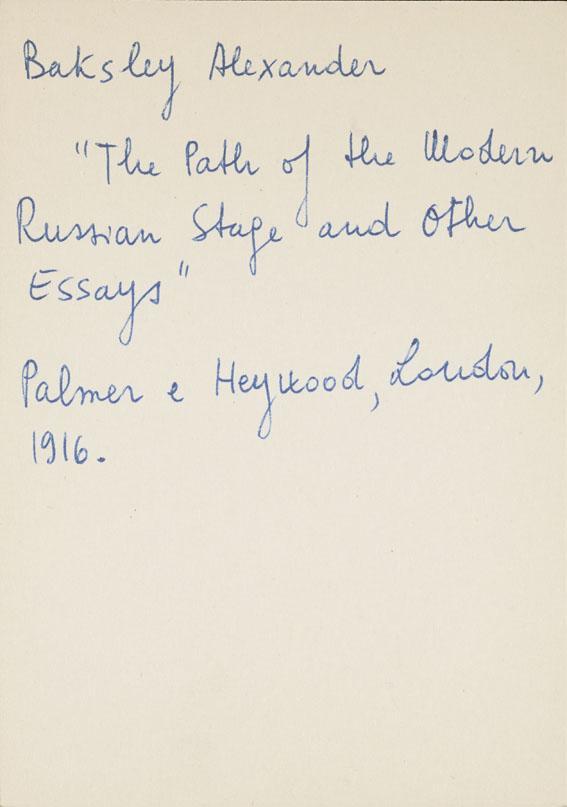 Baksley Alexander
"The Path of the Modern
Russian Stage and Other
Essays"
Palmer e Heywood, London,
1916.